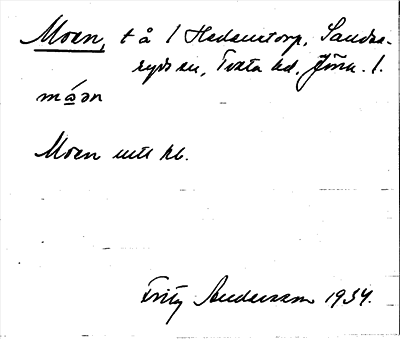 Moen, t å 1 Hedenstorp, Sandse-
ryds sn, Tveta hd, Jönk. l.
mǻən
Moen utt kb.
Fritz Andersson 1934.